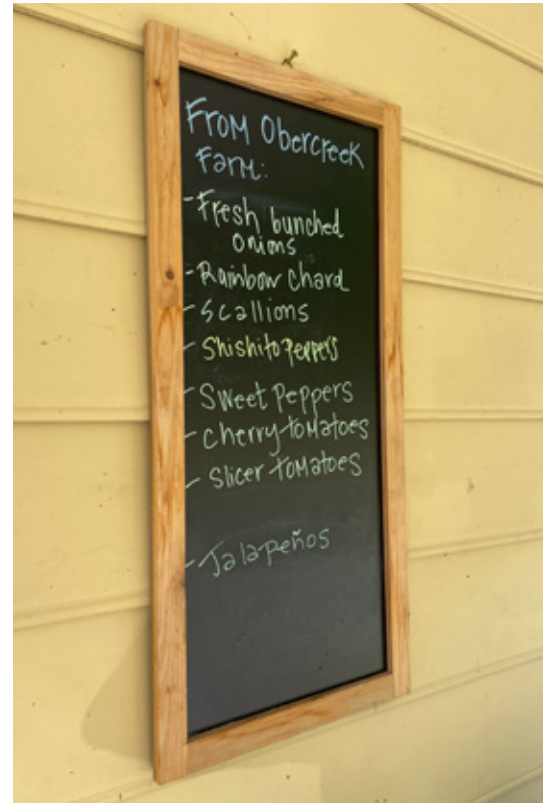 From Obercreek
Farm:
- Fresh bunched
onions
- Rainbow Chard
- Scallions
- Shishito Peppers
- Sweet Peppers
- Cherry tomatoes
- Slicer tomatoes
- Jalapeños